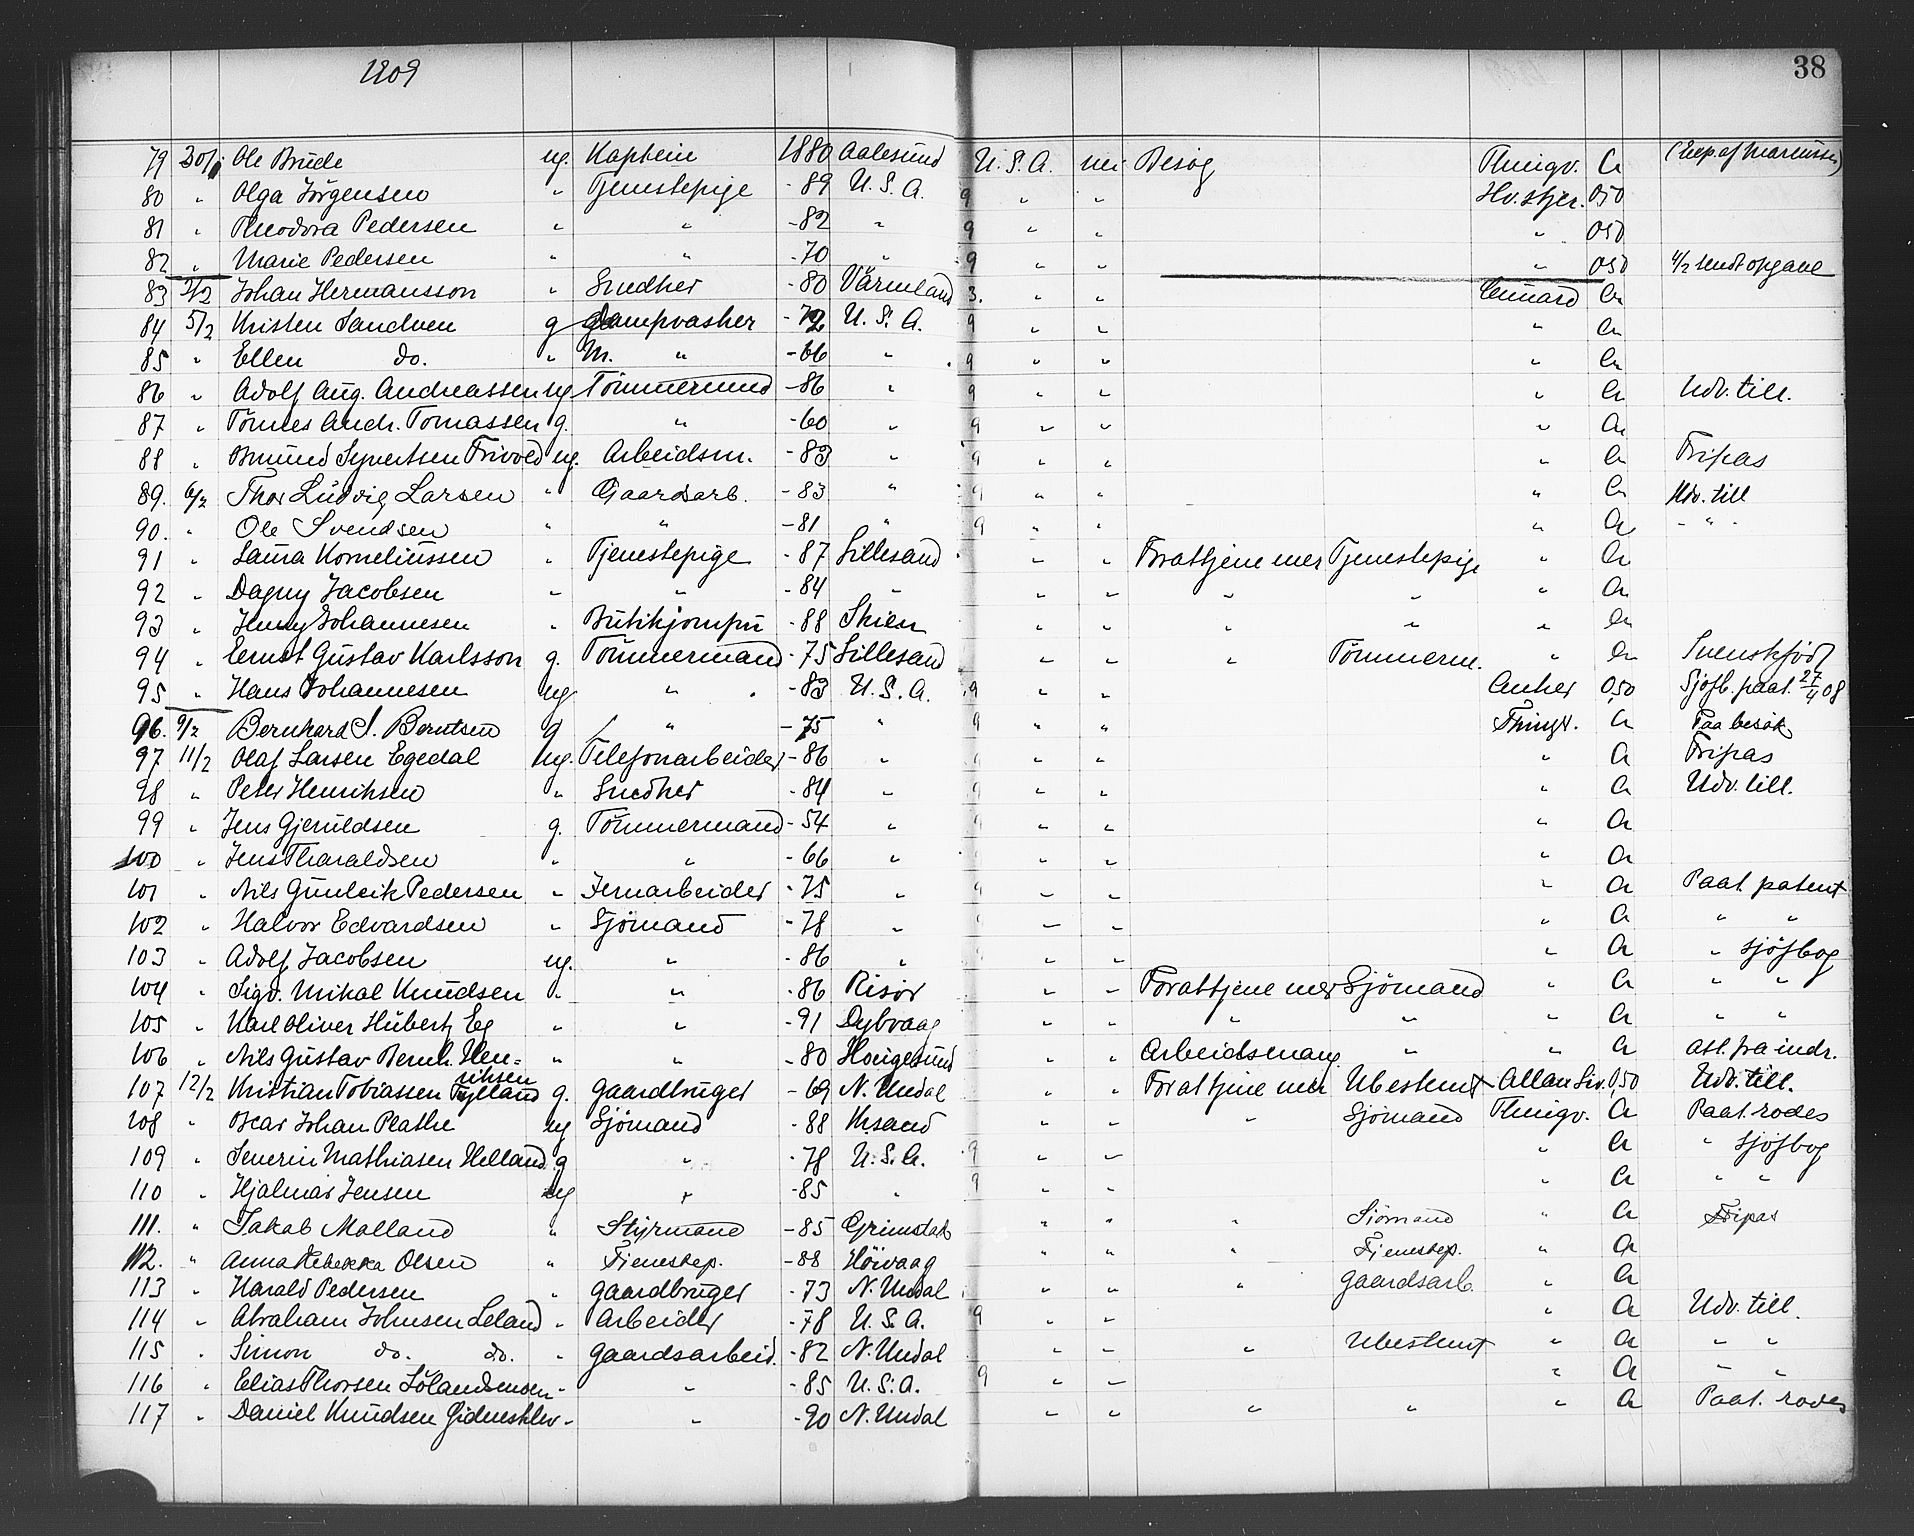 1909 38
79 30/1 Ole Brude ug. Kaptein 1880 Aalesund U.S.A. nei Besøg Thingv. a (Exp. af Marcussen)
80 " Olga Jørgensen " Tjenestepige -89 U.S.A. 9 " " Hv. stjer. 050
81 " Theodora Pedersen " " -82 " 9 " " " 050
82 " Marie Pedersen " " -70 " 9 " " " 050 4/2 sendt opgave
83 5/2 Johan Hermansson " Snedker -80 Värmland 3. " " Cunard a
84 5/2 Kristen Sandven g Dampvasker -72 U.S.A. 9 " " " a
85 " Ellen do. " M. " -66 " 9 " " " a
86 " Adolf Aug. Andreassen ug Tömmermand -86 " 9 " " " a Udv. till.
87 " Tönnes Andr. Tomassen g. " -60 " 9 " " " a
88 " Syvertsen ug. Arbeidsm. -83 " 9 " " " a Fripas
89. 6/2 Thor Ludvig Larsen " Gaardsarb. -83 " 9 " " " a Udv. till
90. " Ole Svendsen " " -81 " 9 " " " a - " -
91 " Laura Korneliussen " Tjenestepige -87 Lillesand " " For at tjene mer Tjenestepige " a
92 " Dagny Jacobsen " " -84 " " " " " " a
93 " Jenny Johannesen " Butikjomfru -88 Skien " " " " " a
94 " Ernst Gustav Karlsson g. Tömmermand -75 Lillesand " " " Tömmerm. " a Svenskfödt
95 " Hans Johannesen ug " -83 U.S.A. 9 " " Anker 0,50 Sjöfb. paat. 27/4 08
96. 9/2 Bernhard S. Berntsen g " -75 " 9 " " Thingv. a Paa besök
97 11/2 Olaf Larsen Egedal ug. Telefonarbeider -86 " 9 " " " a Fripas
98 " Peter Henriksen " Snedker -84 " 9 " " " a Udv. till.
99 " Jens Gjeruldsen g. Tömmermand -54 " 9 " " " a
100 " Jens Tharaldsen " " -66 " " " " a
101 " Nils Gunleik Pedersen " Jernarbeider -75 " 9 " " " a Paat. patent
102 " Halvor Edvardsen " Sjömand -78 " " " " a " "
103 " Adolf Jacobsen ug. " -86 " " " " a " sjöfbog
104 " Sigv. Mikal Knudsen " " -86 Risör " " For at tjene mer Sjömand " a " "
105 " Karl Oliver Hubertz Eg " " -91 Dybvaag " " " " " a " "
106 " Nils Gustav Bernh. Hen= " " -80 Haugesund " " Arbeidsmang. " " a att. fra indr.
riksen
107 12/2 Kristian Tobiassen g. Gaardbruger -69 N. Undal " " For at tjene mer Ubestemt Allan Lin. 0,50 Udv. till.
108 " Oscar Johan Plathe ug Sjömand -88 Krsand " " " Sjömand Thingv. a Paat. rodes
109 " Severin Mathiasen Helland g " -78 U.S.A. 9 " " " a " sjöfbog
110 " Hjalmar Jensen ug " -85 " 9 " " " a " "
111. " Jakob Molland " Styrmand -85 Grimstad " " " Sjömand " a Fripas
112. " Anna Rebekka Olsen " Tjenestep. -88 Höivaag " " " Tjenestep. " a
113 " Harald Pedersen " Gaardbruger -73 N. Undal " " " Gaardsarb. " a
114 " Abraham Johnsen Leland " Arbeider -78 U.S.A. 9 " " " a Udv. till.
115 " Simon do. do. " Gaardsarbeid. -82 N. Undal " " " Ubestemt " a " "
116 " Elias Thorsen " " -85 U.S.A. 9 " " " a " "
117 " Daniel Knudsen " " -90 N. Undal " " " " " a Paat. rodes